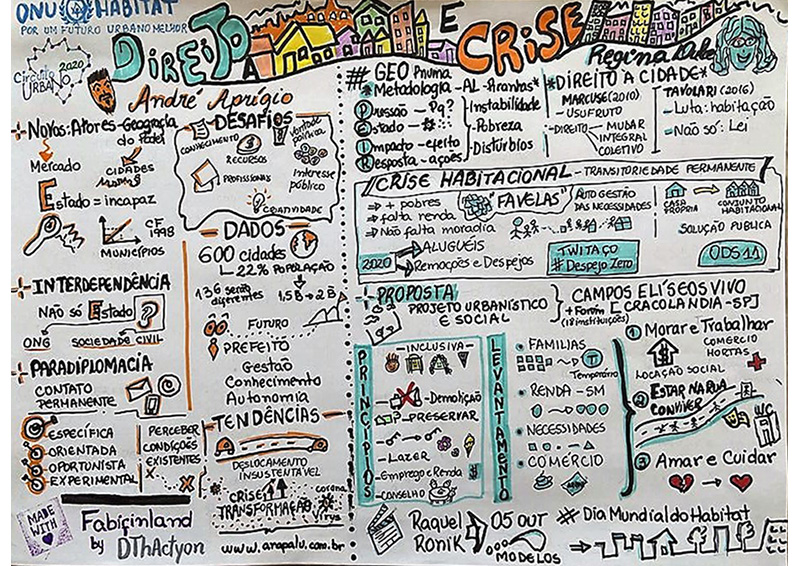 ONU HABITAT
POR UM FUTURO URBANO MELHOR
DIREITO À E CRISE
Circuito
URBANO
2020
André Aprígio
Novos: Atores - Geografia
do Poder
Mercado
CIDADES
Estado = incapaz
CF
1998
MUNICÍPIOS
INTERDEPENDÊNCIA
NÃO SÓ Estado
ONG SOCIEDADE CIVIL
PARADIPLOMACIA
CONTATO
PERMANENTE
ESPECÍFICA
ORIENTADA
OPORTUNISTA
EXPERIMENTAL
PERCEBER
CONDIÇÕES
EXISTENTES
MADE
WITH
Fabifinland
by DThActyon
DESAFIOS
CONHECIMENTO
RECURSOS
PROFISSIONAIS
Vontade
política
Interesse
público
CRIATIVIDADE
DADOS
600 cidades
22% POPULAÇÃO
136 serão
diferentes
1,5B → 2B
FUTURO
PREFEITO
Gestão
Conhecimento
Autonomia
TENDÊNCIAS
DESLOCAMENTO
INSUSTENTÁVEL
CRISE
TRANSFORMAÇÃO
corona
Vírus
www.arapalu.com.br
Regina
# GEO Pnuma
*Metodologia - AL - Aranhas*
Pressão - Pq?
Estado - #:::
Impacto - efeito
Resposta - ações
Instabilidade
Pobreza
Distúrbios
*DIREITO À CIDADE*
MARCUSE (2010)
- USUFRUTO
- DIREITO
MUDAR
INTEGRAL
COLETIVO
TAVOLARI (2016)
- Luta: habitação
- Não só: Lei
CRISE HABITACIONAL - TRANSITORIEDADE PERMANENTE
⇒ + pobres
⇒ falta renda
⇒ Não falta moradia
"FAVELAS"
AUTO GESTÃO
DAS NECESSIDADES
CASA
PRÓPRIA
CONJUNTO
HABITACIONAL
SOLUÇÃO PUBLICA
2020
ALUGUÉIS
Remoções e Despejos
TWITAÇO
# Despejo Zero
ODS 11
PROPOSTA
PROJETO URBANÍSTICO
E SOCIAL
CAMPOS ELÍSEOS VIVO
+ Forúm [CRACOLANDIA - SP]
(18 instituições)
PRINCÍPIOS
- INCLUSIVA -
- Demolição
- PRESERVAR
- LAZER
- Emprego e Renda
- CONSELHO
LEVANTAMENTO
FAMILIAS
Temporário
RENDA - SM
NECESSIDADES
COMÉRCIO
1 Morar e Trabalhar
COMERCIO
HORTAS
LOCAÇÃO SOCIAL
2 ESTAR NA RUA
CONVIVER
3 Amar e Cuidar
Raquel
Ronik
05 OUT # Dia Mundial do Habitat
MODELOS